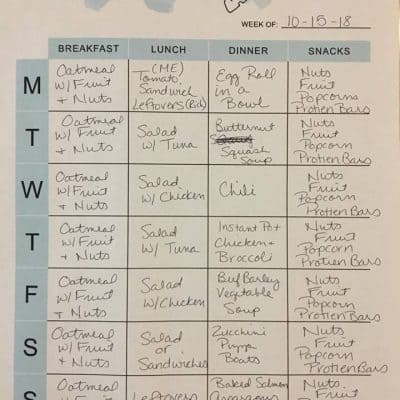 WEEK OF: 10-15-18
BREAKFAST LUNCH DINNER SNACKS
M
Oatmeal
w/ Fruit
+ Nuts
(ME)
Tomato
Sandwich
Leftovers (Rick)
Egg Roll
in a
Bowl
Nuts
Fruit
Popcorns
Protien Bars
T
Oatmeal
w/ Fruit
+ Nuts
Salad
w/ Tuna
Butternut
Squash
Soup
Nuts
Fruit
Popcorn
Protien Bars
W
Oatmeal
w/ Fruit
+ Nuts
Salad
w/ Chicken
Chili
Nuts
Fruit
Popcorn
Protien Bars
T
Oatmeal
w/ Fruit
+ Nuts
Salad
w/ Tuna
Instant Pot
Chicken +
Broccoli
Nuts
Fruit
Popcorn
Protien Bars
F
Oatmeal
w/ Fruit
+ Nuts
Salad
w/ Chicken
Beef Barley
Vegetable
Soup
Nuts
Fruit
Popcorn
Protien Bars
S
Oatmeal
w/ Fruit
+ Nuts
Salad
or
Sandwiches
Zucchini
Boats
Nuts
Fruit
Popcorn
Protien Bars
S
Oatmeal
w/ Fruit
Leftovers
Baked Salmon
Asparagus
Nuts
Fruit
Popcorn